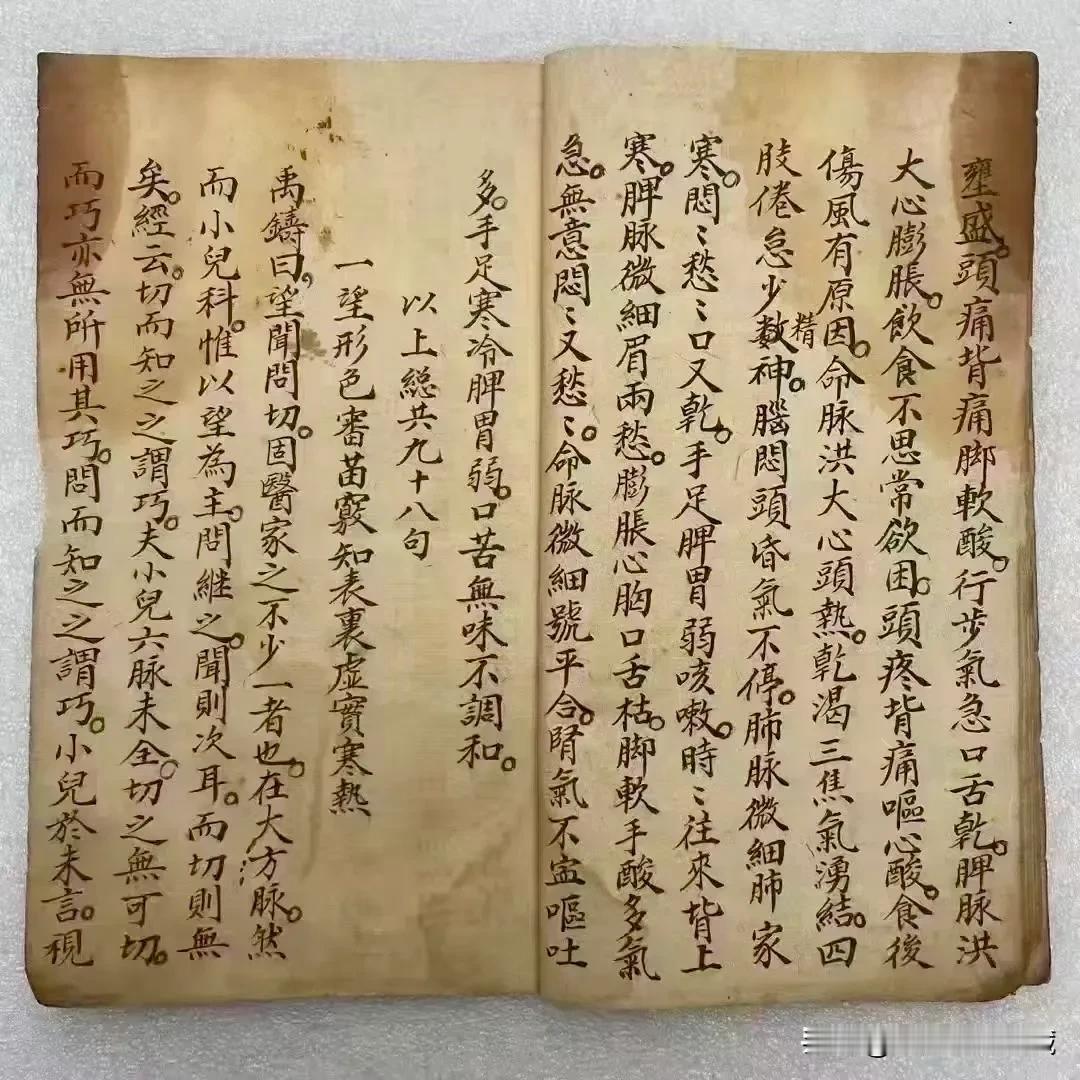 壅盛。頭痛背痛脚軟酸。行步氣急口舌乾。脾脉洪
大心膨脹。飲食不思常欲困。頭疼背痛嘔心酸。食後
傷風有原因。命脉洪大心頭熱。乾渴三焦氣湧結。四
肢倦怠少数神。腦悶頭昏氣不停。肺脉微細肺家
精
寒。悶〻愁〻口又乾。手足脾胃弱咳嗽。時〻往來背上
寒。脾脉微細眉兩愁。膨脹心胸口舌枯。脚軟手酸多氣
急。無意悶〻又愁〻。命脉微細號平合。腎氣不盅嘔吐
多。手足寒冷脾胃弱。口苦無味不調和。
以上総共九十八句
一望形色審苗竅知表裏虛實寒熱
禹鑄曰。望聞問切。固醫家之不少一者也。在大方脉。然
而小兒科。惟以望為主。問継之。聞則次耳。而切則無
矣。經云。切而知之之謂巧。夫小兒六脉未全。切之無可切。
而巧亦無所用其巧。問而知之之謂巧。小兒於未言。視